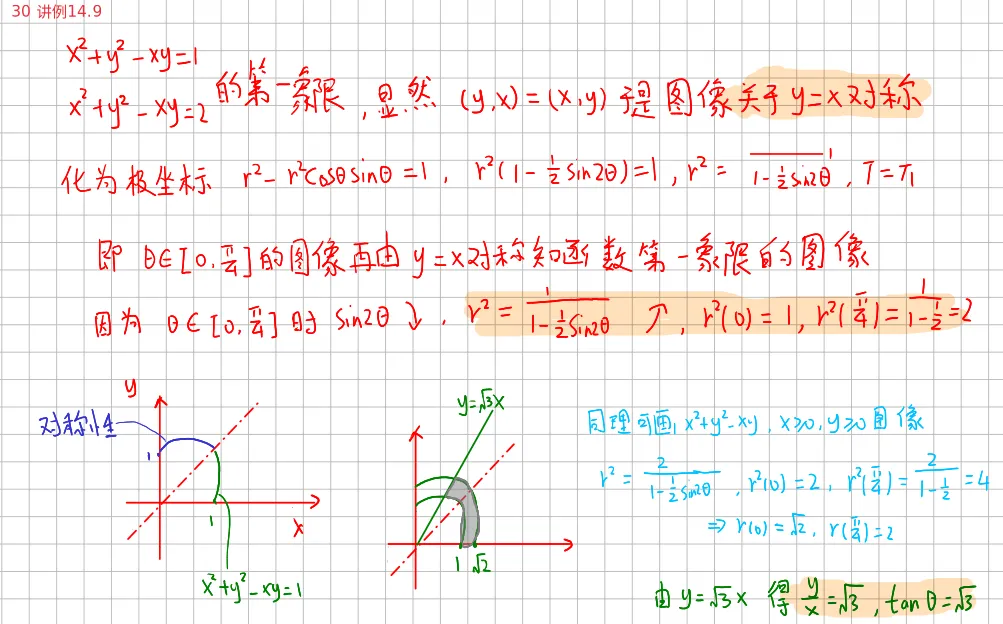 30 讲例14.9
x²+y²-xy=1
x²+y²-xy=2 的第一象限,显然 (y,x)=(x,y) 于是图像关于y=x对称
化为极坐标 r²-r²cosθsinθ=1, r²(1-½sin2θ)=1, r²=1/(1-½sin2θ), T=π
即 θ∈[0,π/4]的图像再由y=x对称知函数第一象限的图像
因为 θ∈[0,π/4]时 sin2θ↘, r²=1/(1-½sin2θ) ↗, r²(0)=1, r²(π/4)=1/(1-½)=2
y
对称性
1
1
x
x²+y²-xy=1
y=√3x
1 √2
同理可画 x²+y²-xy, x≥0, y≥0 图像
r²=2/(1-½sin2θ), r²(0)=2, r²(π/4)=2/(1-½)=4
⇒ r(0)=√2, r(π/4)=2
由 y=√3x 得 y/x=√3, tanθ=√3